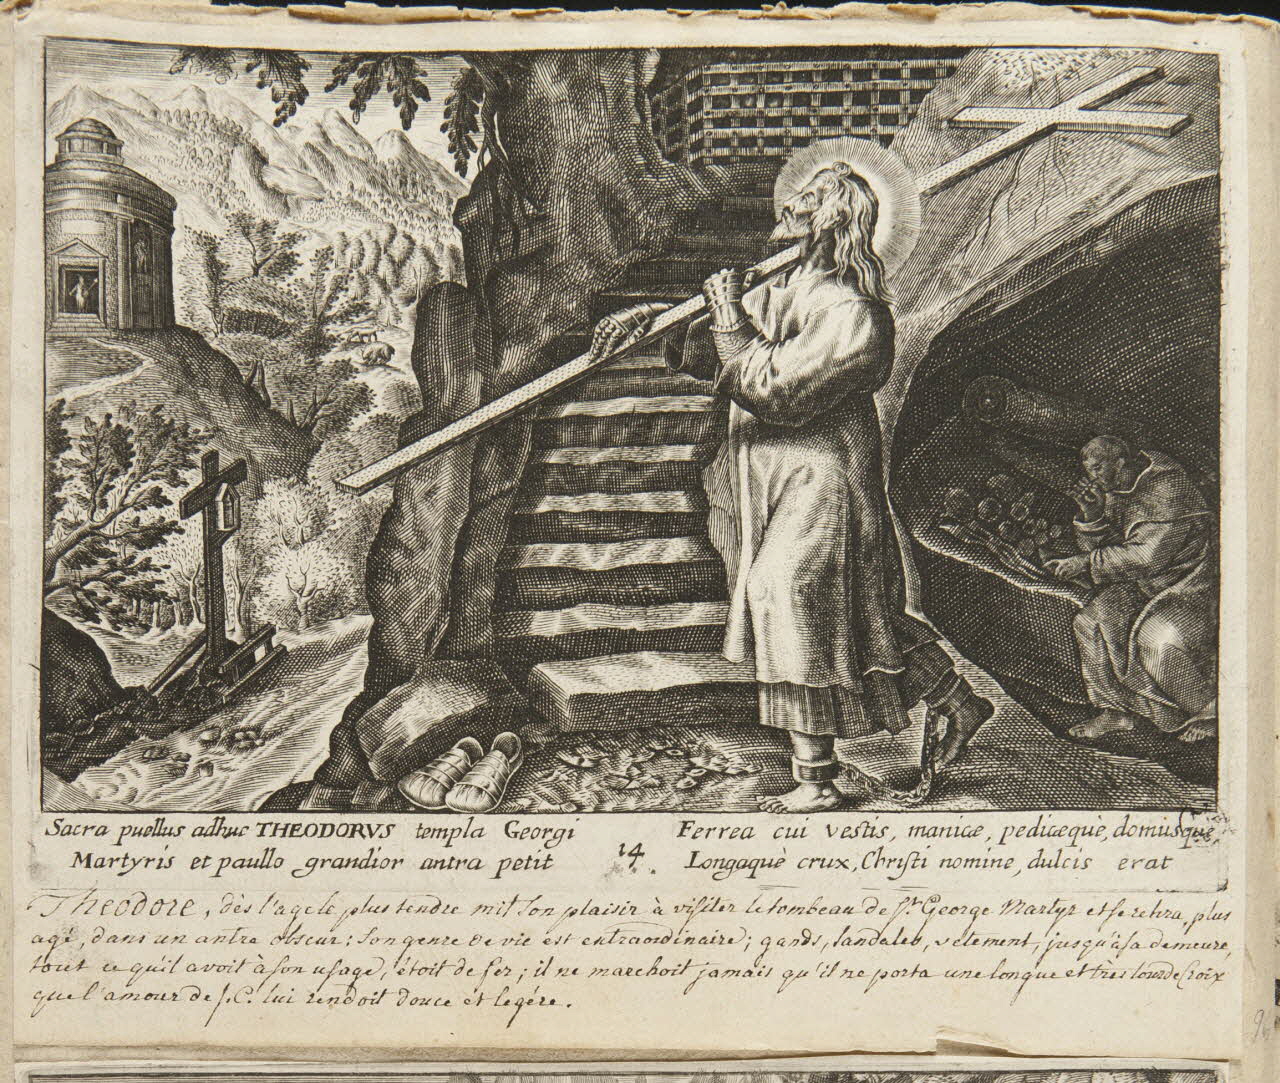 Sacra puellus adhuc THEODORVS templa Georgi
Martyris et paullo grandior antra petit
14.
Ferrea cui vestis, manicæ, pedicæquè, domúsque
Longaquè crux, Christi nomine, dulcis erat
Theodore, dès l'age le plus tendre mit son plaisir à visiter le tombeau de St. George Martyr et se retira, plus
agé, dans un antre obscur: son genre de vie est extraordinaire; gands, sandales, vetement, jusqu'à sa demeure,
tout ce qu'il avoit à son usage, étoit de fer; il ne marchoit jamais qu'il ne porta une longue et très lourde Croix
que l'amour de J. C. lui rendoit douce et legére.